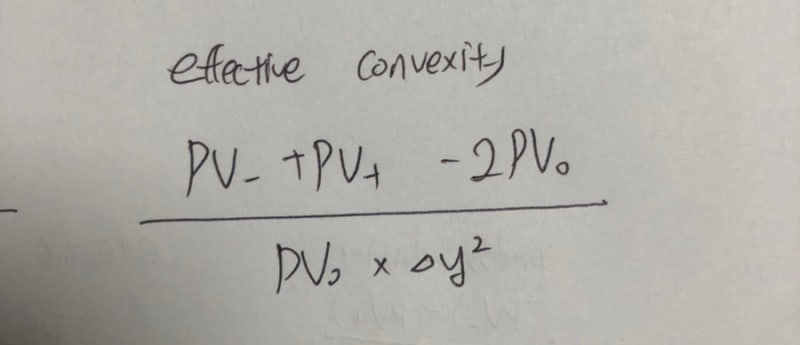 effective convexity
PV₋ + PV₊ - 2PV₀
PV₀ × Δy²